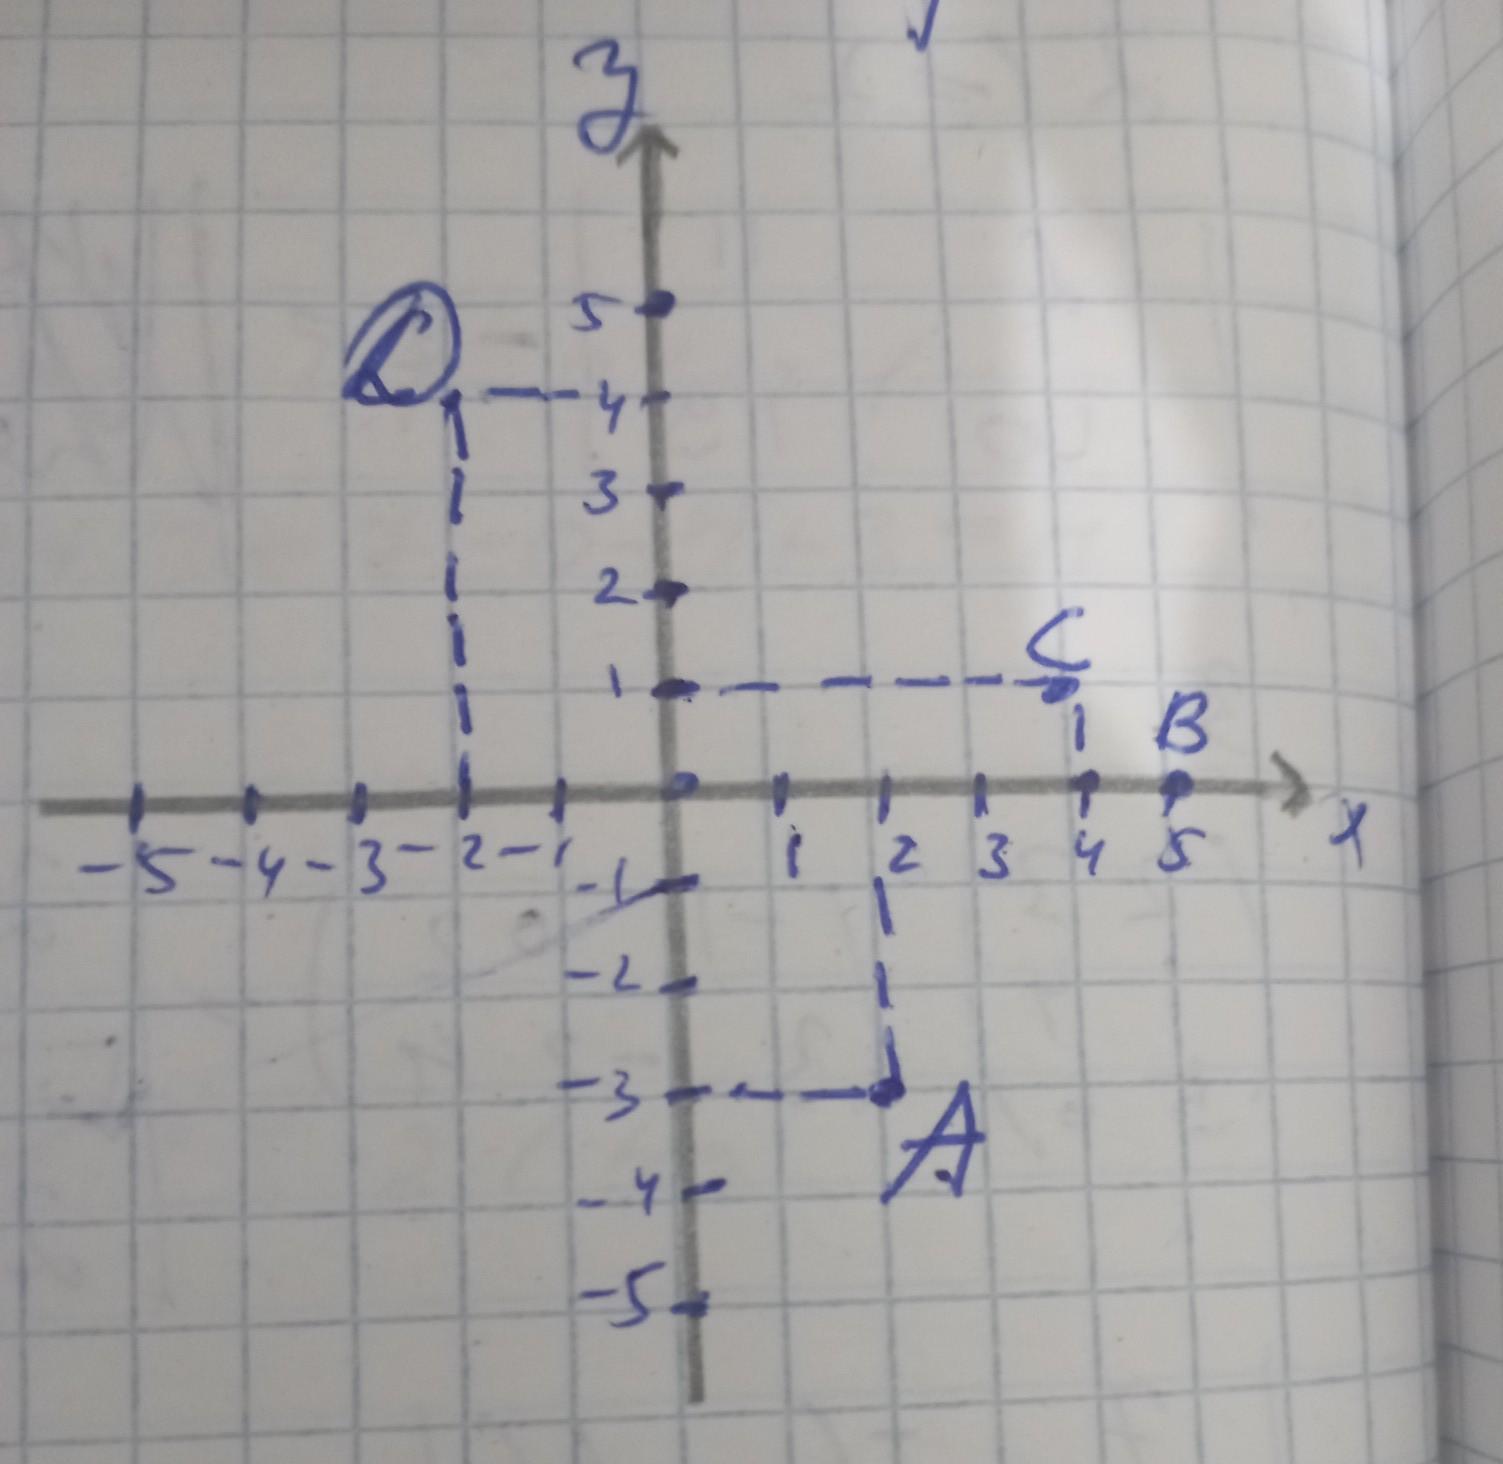 y
5
D
4
3
2
C
1
B
-5 -4 -3 -2 -1 1 2 3 4 5 x
-1
-2
-3
A
-4
-5